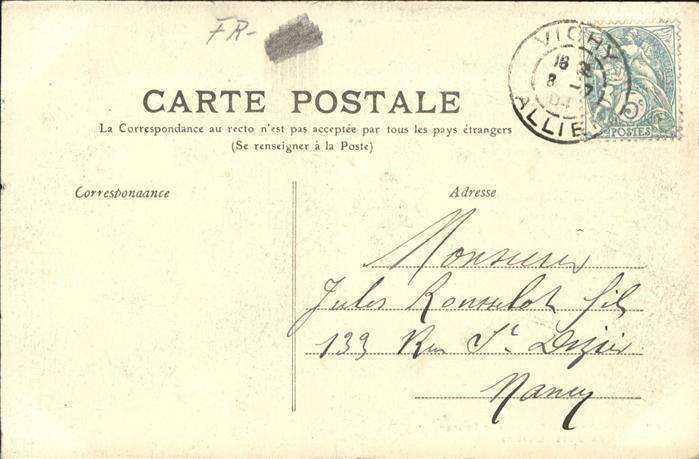 FR-
VICHY
16
8 -7
04
ALLIER
5c
POSTES
CARTE POSTALE
La Correspondance au recto n'est pas acceptée par tous les pays étrangers
(Se renseigner à la Poste)
Correspondance
Adresse
Monsieur
Jules Rousselot fils
133 Rue St Dizier
Nancy